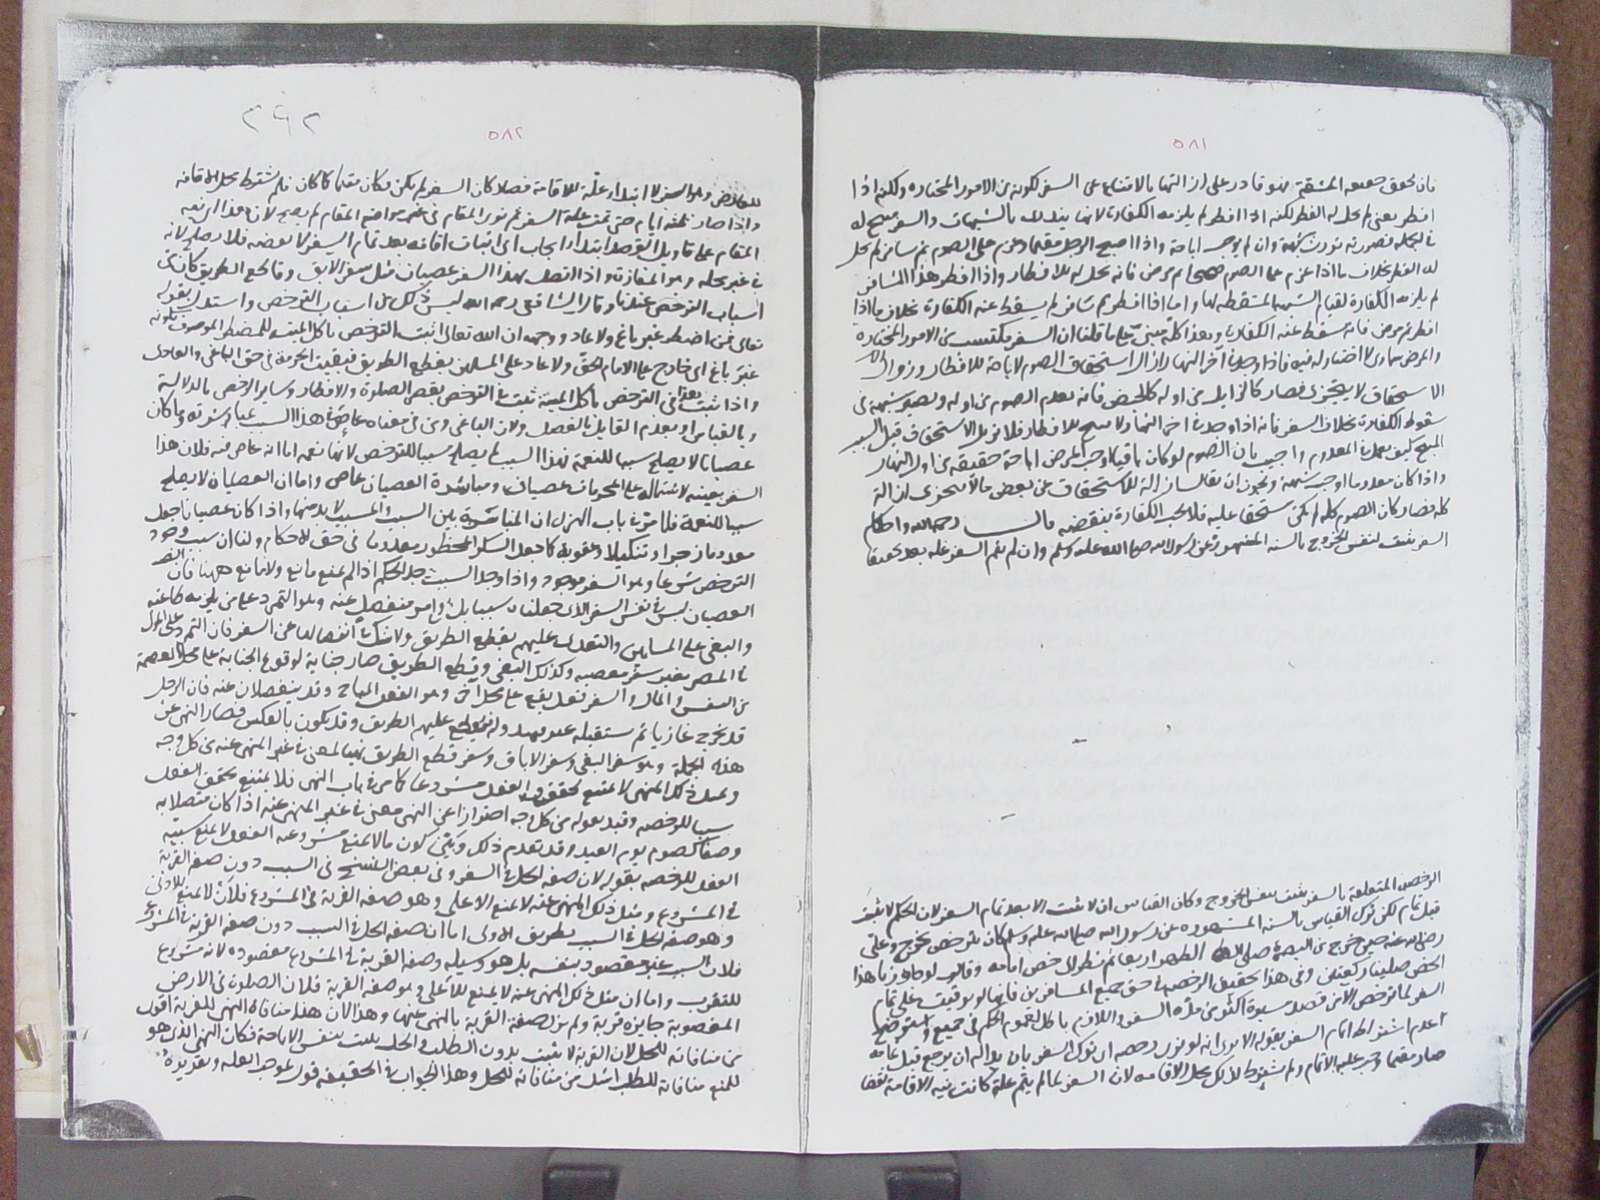 ٥٨١
فان تحقق حقيقة المشقة فهو قادر على ازالتها بالامتناع على السفر لكونه من الامور المختاره ولكنه اذا
افطر يعنى لم يحل له الفطر لكنه اذا افطر لم يلزمه الكفارة لانها بالشبهات والسفر مبيح له
في الجملة فصورته تورث شبهة وان لم يوجب اباحة واذا اصبح الرجل مقيما وعزم على الصوم ثم سافر لم يحل
له الفطر بخلاف ما اذا عزم على الصوم صحيح ثم مرض فانه يحل له الافطار واذا افطر هذا المسافر
لم يلزمه الكفارة لقيام الشبهة المسقطة لها واما اذا افطر ثم سافر لم يسقط عنه الكفارة بخلاف ما اذا
افطر ثم مرض فانه يسقط عنه الكفارة وهذا كله مبنى على ما قلنا ان السفر مكتسب من الامور المختاره
والمرض سماوى لا اختيار له فيه فاذا وجد في آخر النهار زال استحقاق الصوم لاباحة الافطار وزوال
الاستحقاق لا يتجزى فصار كالزايل من اوله كالحيض فانه يعدم الصوم من اوله ويصير شبهة فى
سقوط الكفارة بخلاف السفر فانه اذا وجد في اخر النهار لا يبيح الافطار فلا يزيل الاستحقاق قبل السبب
المبيح كيف يعمل في المعدوم واجيب بان الصوم لو كان باقيا اوجب المرض اباحة حقيقة من اول النهار
واذا كان معدوما اوجب شبهة ويجوز ان يقال ازالة الاستحقاق عن بعض ما لا يتجزى ازالة
كله فصار كان الصوم كله لم يكن مستحقا عليه فلا يجب الكفارة بنقضه قال رحمه الله واحكام
السفر يثبت لنفس الخروج بالسنة المشهورة عن رسول الله صلى الله عليه وسلم وان لم يتم السفر علة بعد تحقيقا
الرخص المتعلقة بالسفر يثبت بنفس الخروج وكان القياس ان لا يثبت الا بعد تمام السفر لان الحكم لا يثبت
قبل تمام لكن ترك القياس بالسنة المشهورة عن رسول الله صلى الله عليه وسلم كان يترخص بخروج وعلى
رضى الله عنه حين خرج من البصرة صلى الظهر اربعا ثم نظر الى خص امامه وقال لو جاوزنا هذا
الخص صلينا ركعتين وفى هذا تحقيق الرخصة فى حق جميع المسافرين فانها لو توقفت على تمام
السفر لما ترخص الا من قصد مسيرة اكثر من مدة السفر واللازم باطل لعموم الحكم فى جميع
اعدم اشتراط اتمام السفر بقوله الا يرى انه لو نوى رحمه ان ترك السفر بان بدا له ان يرجع قبل تمامه
صار مقيما وجب عليه الاتمام ولم يشترط لذلك محل الاقامة لان السفر لما لم يتم علة كانت نيه الاقامة نقضا
٥٨٢
٢٩٢
للعارض وهو السفر لا ابتداء علة للاقامة فصار كان السفر لم يكن وكان مقيما كما كان فلم يشترط محل الاقامة
واذا صار ثلثة ايام حتى تمت علة السفر ثم نوى المقام فى غير مواضع المقام لم يصح لان هذا اى نية
المقام على تاويل القصد ابتداء ايجاب اى اثبات اقامة بعد تمام السفر لا نقضه فلا يصلح لانه
فى غير محله وهو المفازة واذا اتصل بهذا السفر عصيان مثل سفر الابق وقاطع الطريق كان من
اسباب الترخص عندنا وقال الشافعى رحمه الله ليس ذلك من اسباب الترخص واستدل بقوله
تعالى فمن اضطر غير باغ ولا عاد ووجهه ان الله تعالى اثبت الترخص باكل الميتة للمضطر الموصوف بكونه
غير باغ اى خارج على الامام الحق ولا عاد على المسلمين بقطع الطريق فبقيت الحرمة فى حق الباغى والعادى
واذا ثبت هذا فى الترخص باكل الميتة ثبت فى الترخص بقصر الصلوة والافطار وساير الرخص بالدلالة
وبالقياس او بعدم القايل بالفصل ولان الباغى ومن فى معناه عاصى فى هذا السبب وما كان
عصيانا لا يصلح سببا للنعمة فهذا السبب لا يصلح سببا للترخص لانها نعمه اما انه عاص فيه فلان هذا
السفر بعينه لاشتماله على المحرمات عصيان ومباشرة العصيان عاصى واما ان العصيان لا يصلح
سببا للنعمة فلما مر فى باب الهزل ان المناسبة بين السبب والمسبب لابد منها واذا كان عصيانا جعل
معدوما زجرا وتنكيلا وعقوبة كما جعل السكر المحظور معدوما فى حق الاحكام ولنا ان سبب وجود
الترخص شرعا وهو السفر موجود واذا وجد السبب وجد الحكم اذا لم يمنع مانع ولا مانع ههنا فان
العصيان ليس فى نفس السفر الذى جعلناه سببا بل فى امر منفصل عنه وهو التمرد على من يلزمه طاعته
والبغى على المسلمين والتعدى عليهم بقطع الطريق ولا شك فى انفصالها عن السفر فان التمرد على المولى
فى المصر بغير سفر معصيه وكذلك البغى وقطع الطريق صار جناية لوقوع الجناية على محل العصمة
من النفس والمال والسفر فعل يقع على محل آخر وهو الفعل المباح وقد ينفصلان عنه فان الرجل
قد يخرج غازيا ثم يستقبله عير فيبدو له فيقطع عليهم الطريق وقد يكون بالعكس فصار النهى عن
هذه الجملة وهو سفر البغى وسفر الاباق وسفر قطع الطريق نهيا لمعنى فى غير المنهى عنه من كل وجه
ومثل ذلك المنهى لا يمتنع تحقق الفعل مشروعا كما مر فى باب النهى فلا يمتنع تحقق الفعل
سببا للرخصه وقيد بقوله من كل وجه احترازا عن النهى معنى فى غير المنهى عنه اذا كان متصلا به
وصفا كصوم يوم العيد وقد تقدم ذلك وبين كون ما لا يمنع مشروعية الفعل لا يمنع سببية
الفعل للرخصه بقوله لان صفة الحل فى السفر وفى بعض النسخ فى السبب دون صفة القربة
فى المشروع ومثل ذلك المنهى عنه لا يمنع الاعلى وهو صفة القربة فى المشروع فلان لا يمنع الادنى
وهو صفة الحل فى السبب بطريق الاولى اما ان صفة الحل فى السبب دون صفة القربة فى المشروع
فلان السبب غير مقصود بنفسه بل هو وسيلة وصفة القربة فى المشروع مقصوده لانه مشروع
للتقرب واما ان مثل ذلك المنهى عنه لا يمنع للاعلى وهو صفة القربة فلان الصلوة فى الارض
المغصوبة جايزة قربة ولم يزل صفة القربة بالنهى عنها وهذا لان هذا منافاة النهى للقربة اقوى
من منافاته للحل لان القربة لا يثبت بدون الطلب والحل يثبت بنفس الاباحة فكان النهى الذى هو
للمنع منافاته للطلب اشد من منافاته للحل وهذا الجواب فى الحقيقة قول بموجب العلة وتقديره